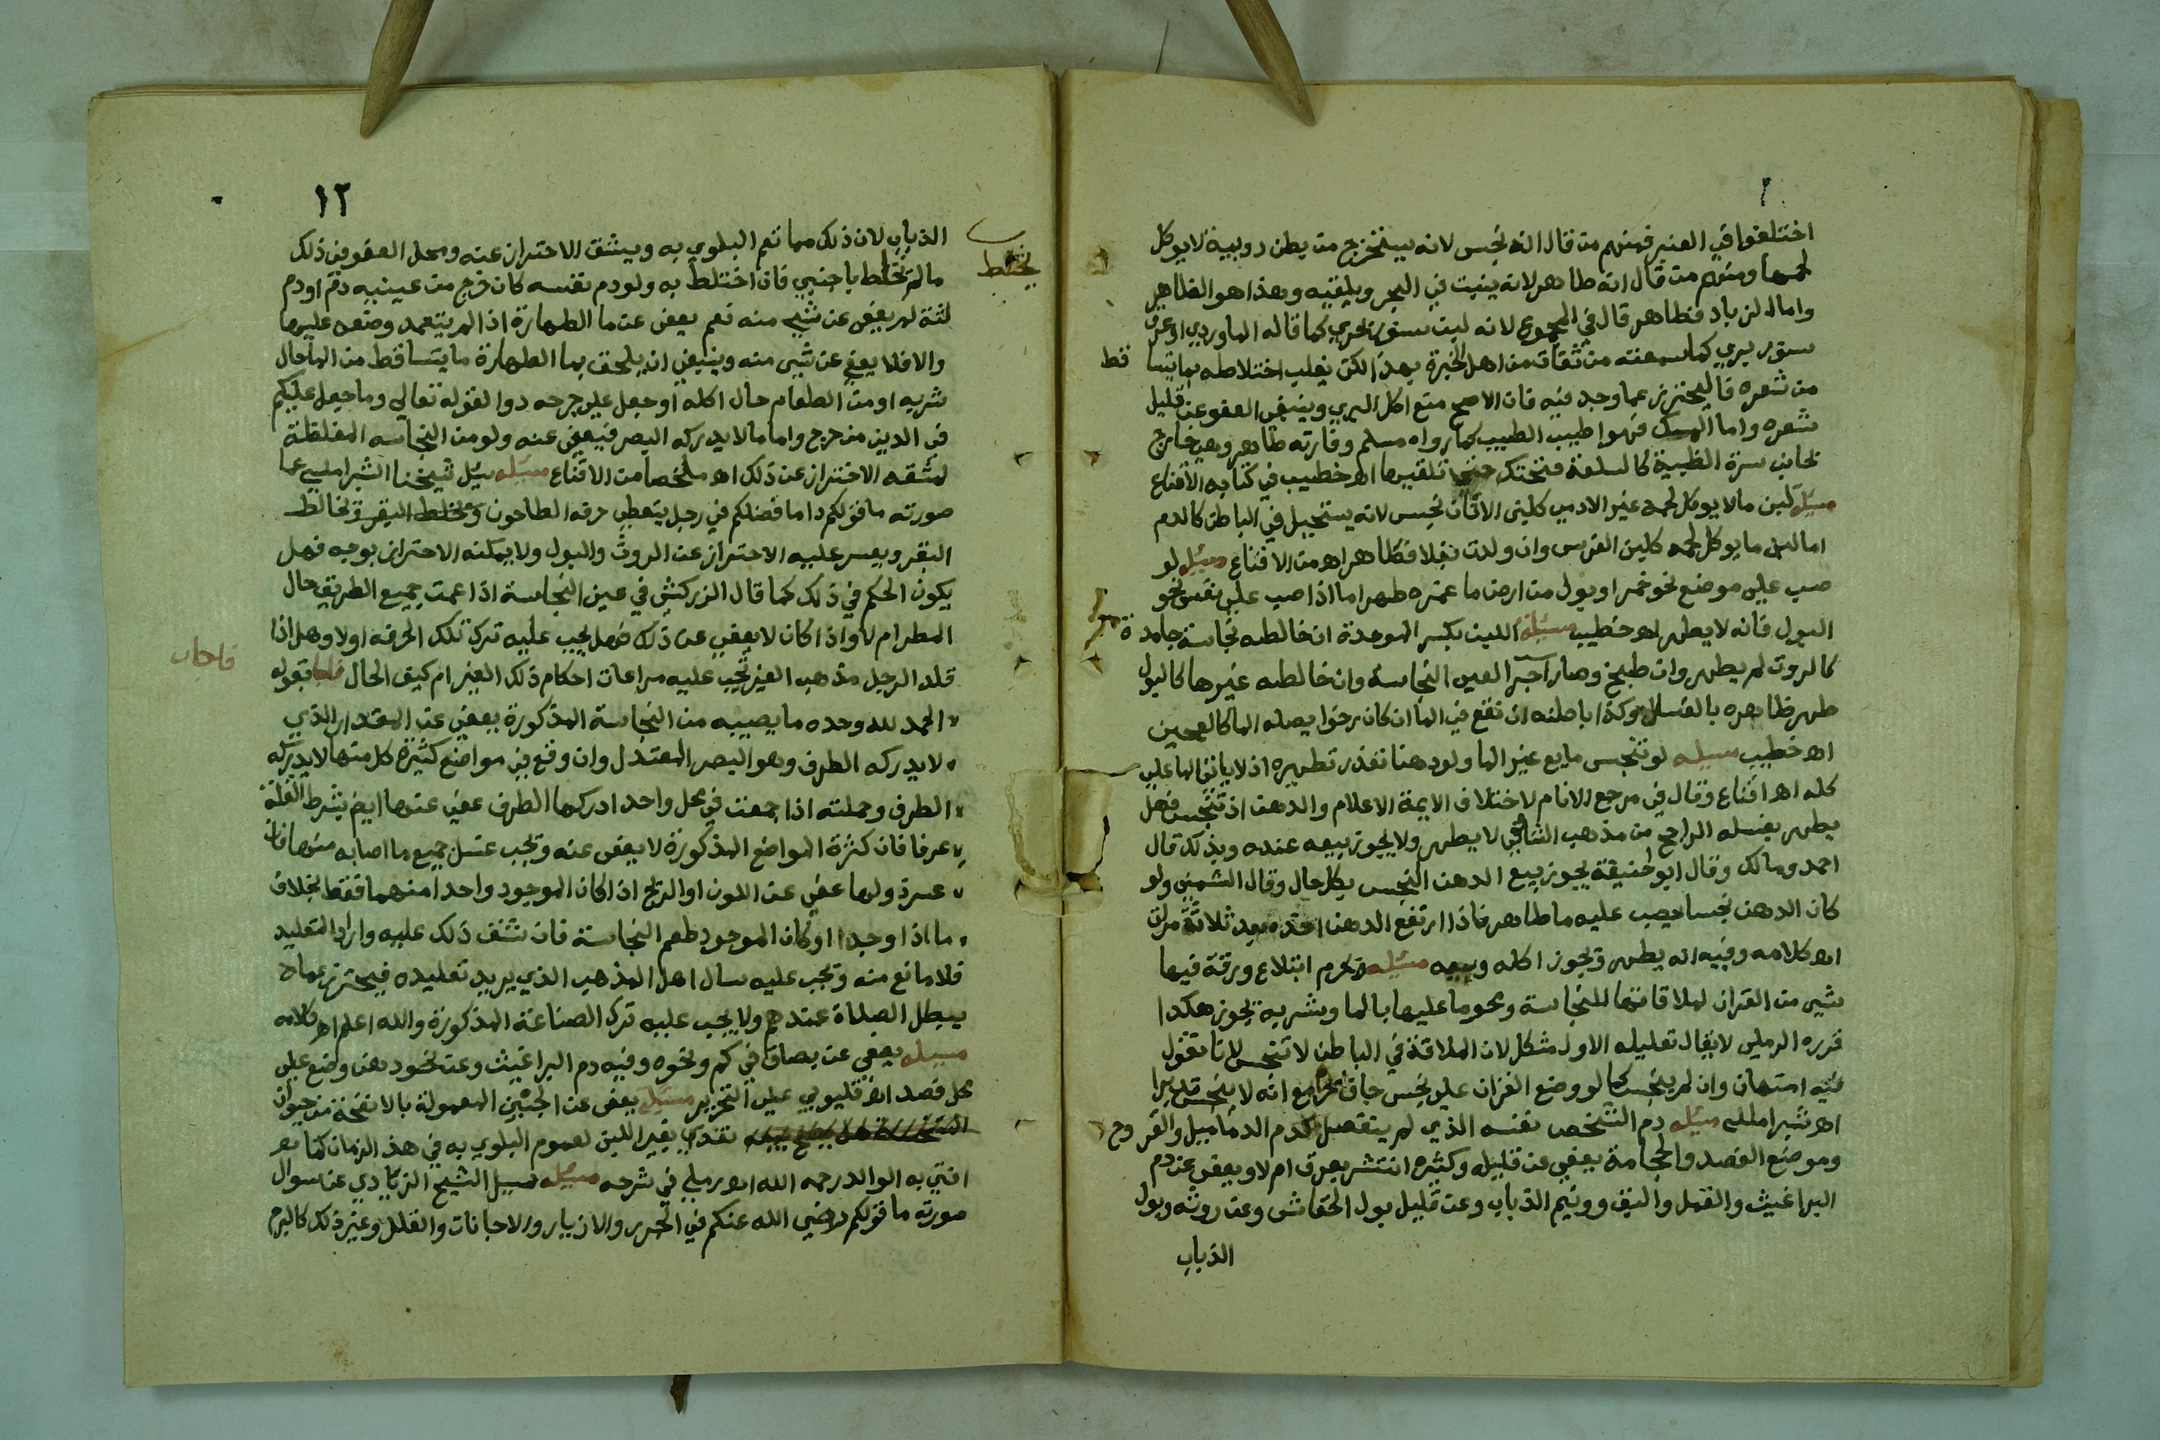 اختلفوا في العنبر فمنهم من قال انه نجس لانه يستخرج من بطن دويبة لا يوكل
لحمها ومنهم من قال انه طاهر لانه ينبت في البحر ويلفيه وهذا هو الظاهر
واما الزباد فطاهر قال في المجموع لانه لبن سنور بحري كما قاله الماوردي او عرق
سنور بري كما سمعته من ثقات من اهل الخبرة بهذا لكن يغلب اختلاطه بما يتسا
قط
من شعره فاليحترز عما وجد فيه فان الاصح منع اكل البري وينبغي العفو عن قليل
شعره واما المسك فهو اطيب الطيب كما رواه مسلم وفارته طاهرة وهي خارج
بجانب سرة الظبية كالسلعة فتحتك حتى تلقيها اه خطيب في كتابه الاقناع
مسئلة لبن مالا يوكل لحمه غير الادمي كلبن الاتان نجس لانه يستحيل في الباطن كالدم
اما لبن ما يوكل لحمه كلبن الفرس وان ولدت بغلا فطاهر اه من الاقناع مسئلة لو
صب على موضع نحو خمر او بول من ارض ما غمره طهر اما اذا صب على نفس نحو
البول فانه لا يطهر اه خطيب مسئلة اللبن بكسر الموحدة ان خالطه نجاسة جامدة
كالروث لم يطهر وان طبخ وصار آجرا لعين النجاسة وان خالطه غيرها كالبول
طهر ظاهره بالغسل وكذا باطنه ان نقع في الما ان كان رخوا يصله الما كالعجين
اه خطيب مسيلة لو تنجس مايع غير الما ولو دهنا تعذر تطهيره اذ لا ياتي الما على
كله اه اقناع وقال في مرجع الانام لاختلاف الايمة الاعلام والدهن اذ تنجس فهل
يطهر بغسله الراجح من مذهب الشافعي لا يطهر ولا يجوز بيعه عنده وبذلك قال
احمد ومالك وقال ابو حنيفة يجوز بيع الدهن النجس بكل حال وقال الشمني ولو
كان الدهن نجسا يصب عليه ما طاهر فاذا ارتفع الدهن اخذه بعد ثلاثة مرات
اه كلامه وفيه انه يطهر ويجوز اكله وبيعه مسئلة ويحرم ابتلاع ورقة فيها
شي من القران لملاقاتها للنجاسة ومحو ما عليها بالما وشربه يجوز هكذا
قرره الرملي لا يقال تعليله الاول مشكل لان الملاقة في الباطن لا تنجس لانا نقول
فيه امتهان وان لم ينجس كما لو وضع القران على نجس جاف يحرم مع انه لا ينجس تدبرا
اه شبراملسي مسئلة دم الشخص نفسه الذي لم ينفصل كدم الدماميل والقروح
وموضع الفصد والحجامة يعفى عن قليله وكثيره انتشر بعرق ام لا ويعفى عن دم
البراغيث والقمل والبق وونيم الذباب وعن قليل بول الخفاش وعن روثه وبول
الذباب
١٢
الذباب لان ذلك مما تعم البلوي به ويشق الاحتراز عنه ومحل العفو في ذلك
مالم يختلط باجنبي فان اختلط به ولو دم نفسه كان خرج من عينيه دم او دم
يختلط
لثة لم يعفى عن شي منه نعم يعفى عن ما الطهارة اذا لم يتعمد وضعه عليها
والا فلا يعفى عن شي منه وينبغي ان يلحق بما الطهارة ما يتساقط من الما حال
شربه او من الطعام حال اكله او جعل على جرحه دوا لقوله تعالى وما جعل عليكم
في الدين من حرج واما مالا يدركه البصر فيعفى عنه ولو من النجاسه المغلظة
لمشقه الاحتراز عن ذلك اه ملخصا من الاقناع مسئله سيل شيخنا الشبراملسي عما
صورته ما قولكم دام فضلكم في رجل يتعطى حرفه الطاحون ويخلط البقرة يخالط
البقر ويعسر عليه الاحتراز عن الروث والبول ولا يمكنه الاحتراز بوجه فهل
يكون الحكم في ذلك كما قال الزركشي في عين النجاسة اذا عمت جميع الطريق حال
المطر ام لا واذا كان لا يعفى عن ذلك فهل يجب عليه ترك تلك الحرفه اولا وهل اذا
قلد الرجل مذهب الغير تجب عليه مراعات احكام ذلك الغير ام كيف الحال فاجاب بقوله
فاجاب
الحمد لله وحده ما يصيبه من النجاسة المذكورة يعفى عن المقدار الذي
لا يدركه الطرف وهو البصر المعتدل وان وقع في مواضع كثيرة كل منها لا يدركه
الطرف وجملته اذا جمعت في محل واحد ادركها الطرف عفي عنها ايض بشرط القلة
عرفا فان كثرة المواضع المذكورة لا يعفى عنه وتجب غسل جميع ما اصابه منها فان
عسرة ولها عفي عن اللون او الريح اذا كان الموجود واحدا منهما فقط بخلاف
ما اذا وجدا او كان الموجود طعم النجاسة فان شق ذلك عليه واراد التقليد
فلا مانع منه وتجب عليه سال اهل المذهب الذي يريد تقليده فيحترز عما
يبطل الصلاة عندهم ولا يجب عليه ترك الصناعة المذكورة والله اعلم اه كلامه
مسيله يعفى عن بصاق في كم ونحوه وفيه دم البراغيث وعن نحو دهن وضع على
محل فصد اه قليوبي على التحرير مسئله يعفى عن الجبن المعمولة بالانفحة من حيوان
تغدي بغير اللبن لعموم البلوي به في هذ الزمان كما
افتي به الوالد رحمه الله اه رملي في شرحه مسئله سيل الشيخ الزيادي عن سوال
صورته ما قولكم رضي الله عنكم في الجرر والازيار والاجانات والقلل وغير ذلك كالبرم